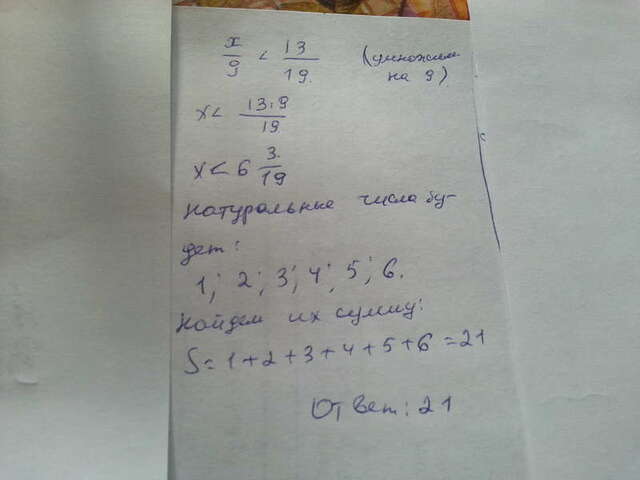 x/9 < 13/19. (умножим
на 9)
x < 13·9/19
x < 6 3/19
натуральные числа бу-
дет:
1; 2; 3; 4; 5; 6.
Найдем их сумму:
S = 1 + 2 + 3 + 4 + 5 + 6 = 21
Ответ: 21